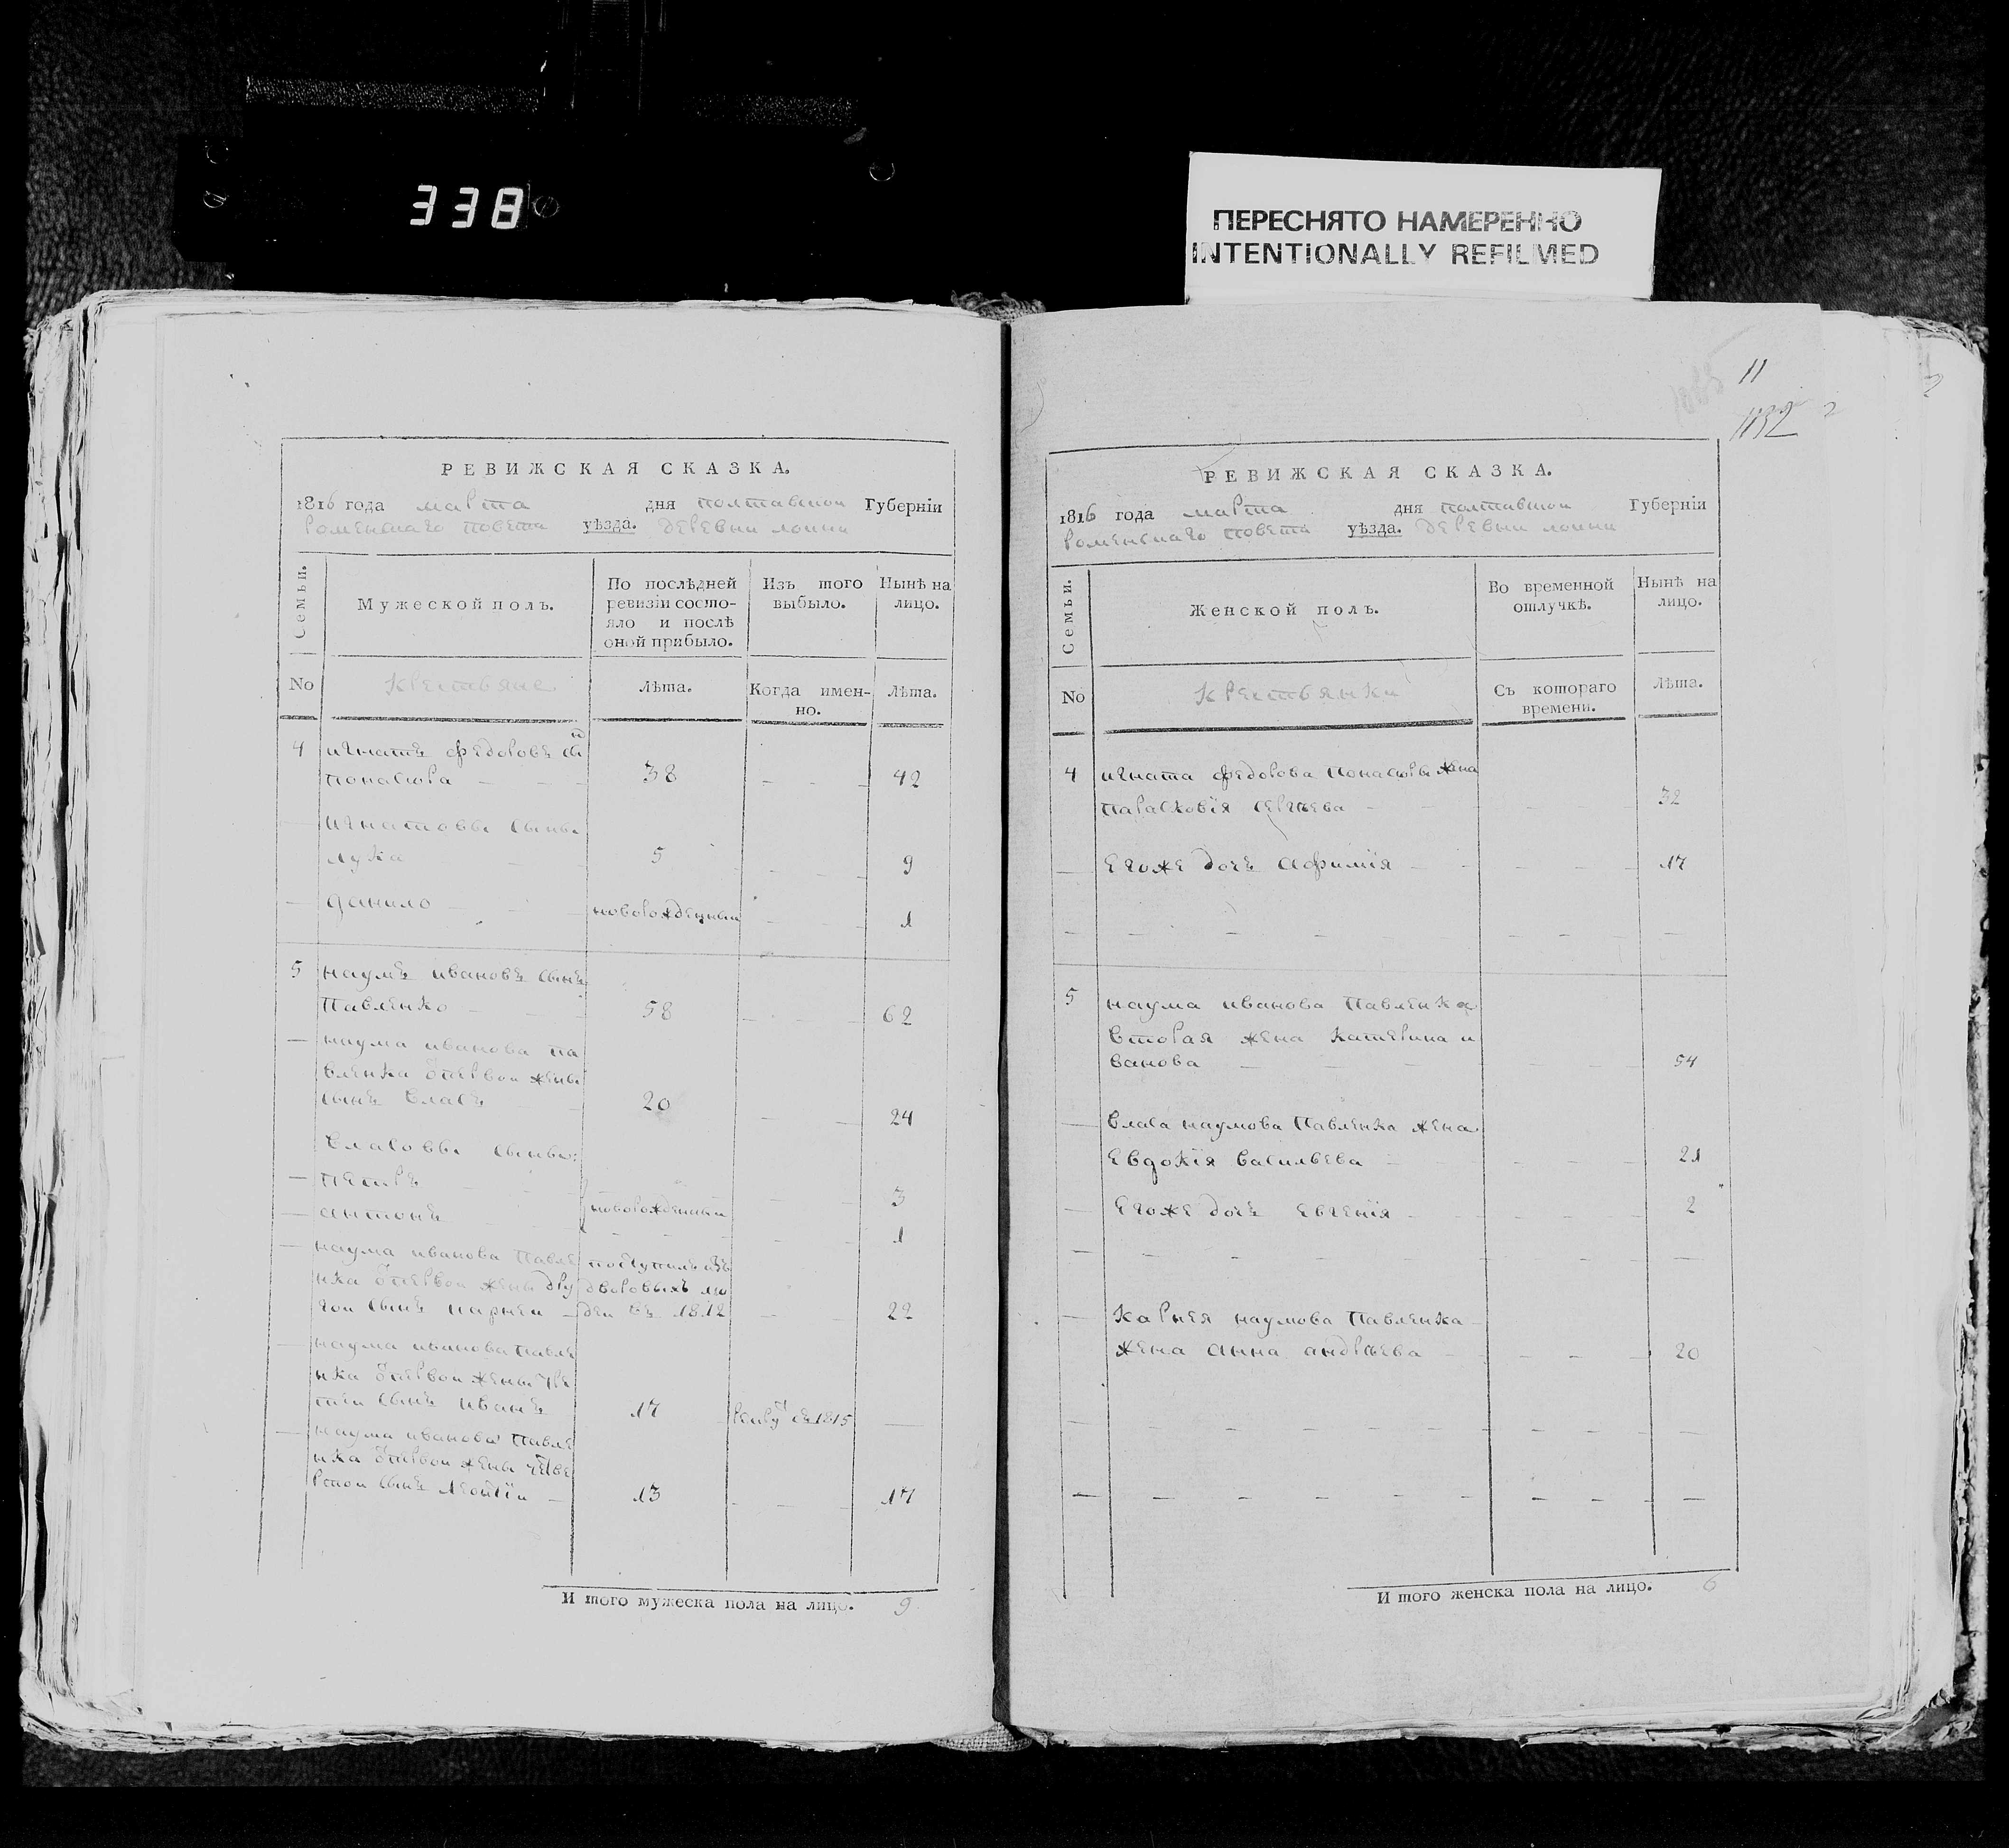 338
ПЕРЕСНЯТО НАМЕРЕННО
INTENTIONALLY REFILMED
РЕВИЖСКАЯ СКАЗКА.
1816 года марта дня полтавской Губерніи
роменскаго повета уѣзда. деревни
Семьи.
Мужеской полъ.
По послѣдней ревизіи состояло и послѣ оной прибыло.
Изъ того выбыло.
Нынѣ на лицо.
No
Крестьяне
Лѣта.
Когда именно.
Лѣта.
4 игнатъ федоровъ сы
понасюра 38 42
игнатовы сыны
лука 5 9
данило новорожденный 1
5 наумъ ивановъ сынъ
Павленко 58 62
наума иванова па
вленка ѿпервой жены
сынъ власъ 20 24
власовы сыны:
петръ 3
антонъ новорожденныи 1
наума иванова Павле поступилъ изъ
нка ѿпервой жены дру дворовыхъ лю
гой сынъ карней дей въ 1812 22
наума иванова Павле
нка ѿпервой жены тре
тій сынъ иванъ 17 въ 1815
наума иванова Павле
нка ѿпервой жены четве
ртой сынъ леонтіи 13 17
И того мужеска пола на лицо. 9
11
1132
РЕВИЖСКАЯ СКАЗКА.
1816 года марта дня полтавской Губерніи
роменскаго повета уѣзда. деревни
Семьи.
Женской полъ.
Во временной отлучкѣ.
Нынѣ на лицо.
No
Крестьянки
Съ котораго времени.
Лѣта.
4 игната федорова понасюры жена
парасковія сергѣева 32
егоже дочъ афимія 17
5 наума иванова Павленка
вторая жена катерина и
ванова 54
власа наумова Павленка жена
евдокія васильева 21
егоже дочъ евгенія 2
карнея наумова Павленка
жена анна андрѣева 20
И того женска пола на лицо. 6